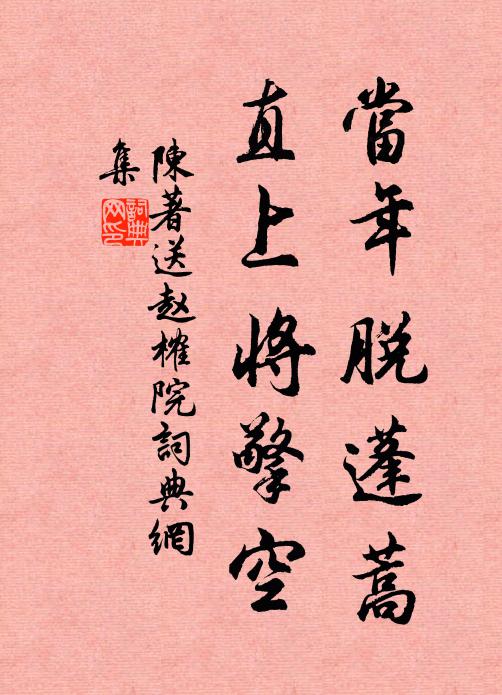 當年脫蓬蒿
直上將擎空
陳著送赵榷院詞典網
集
詞典网印